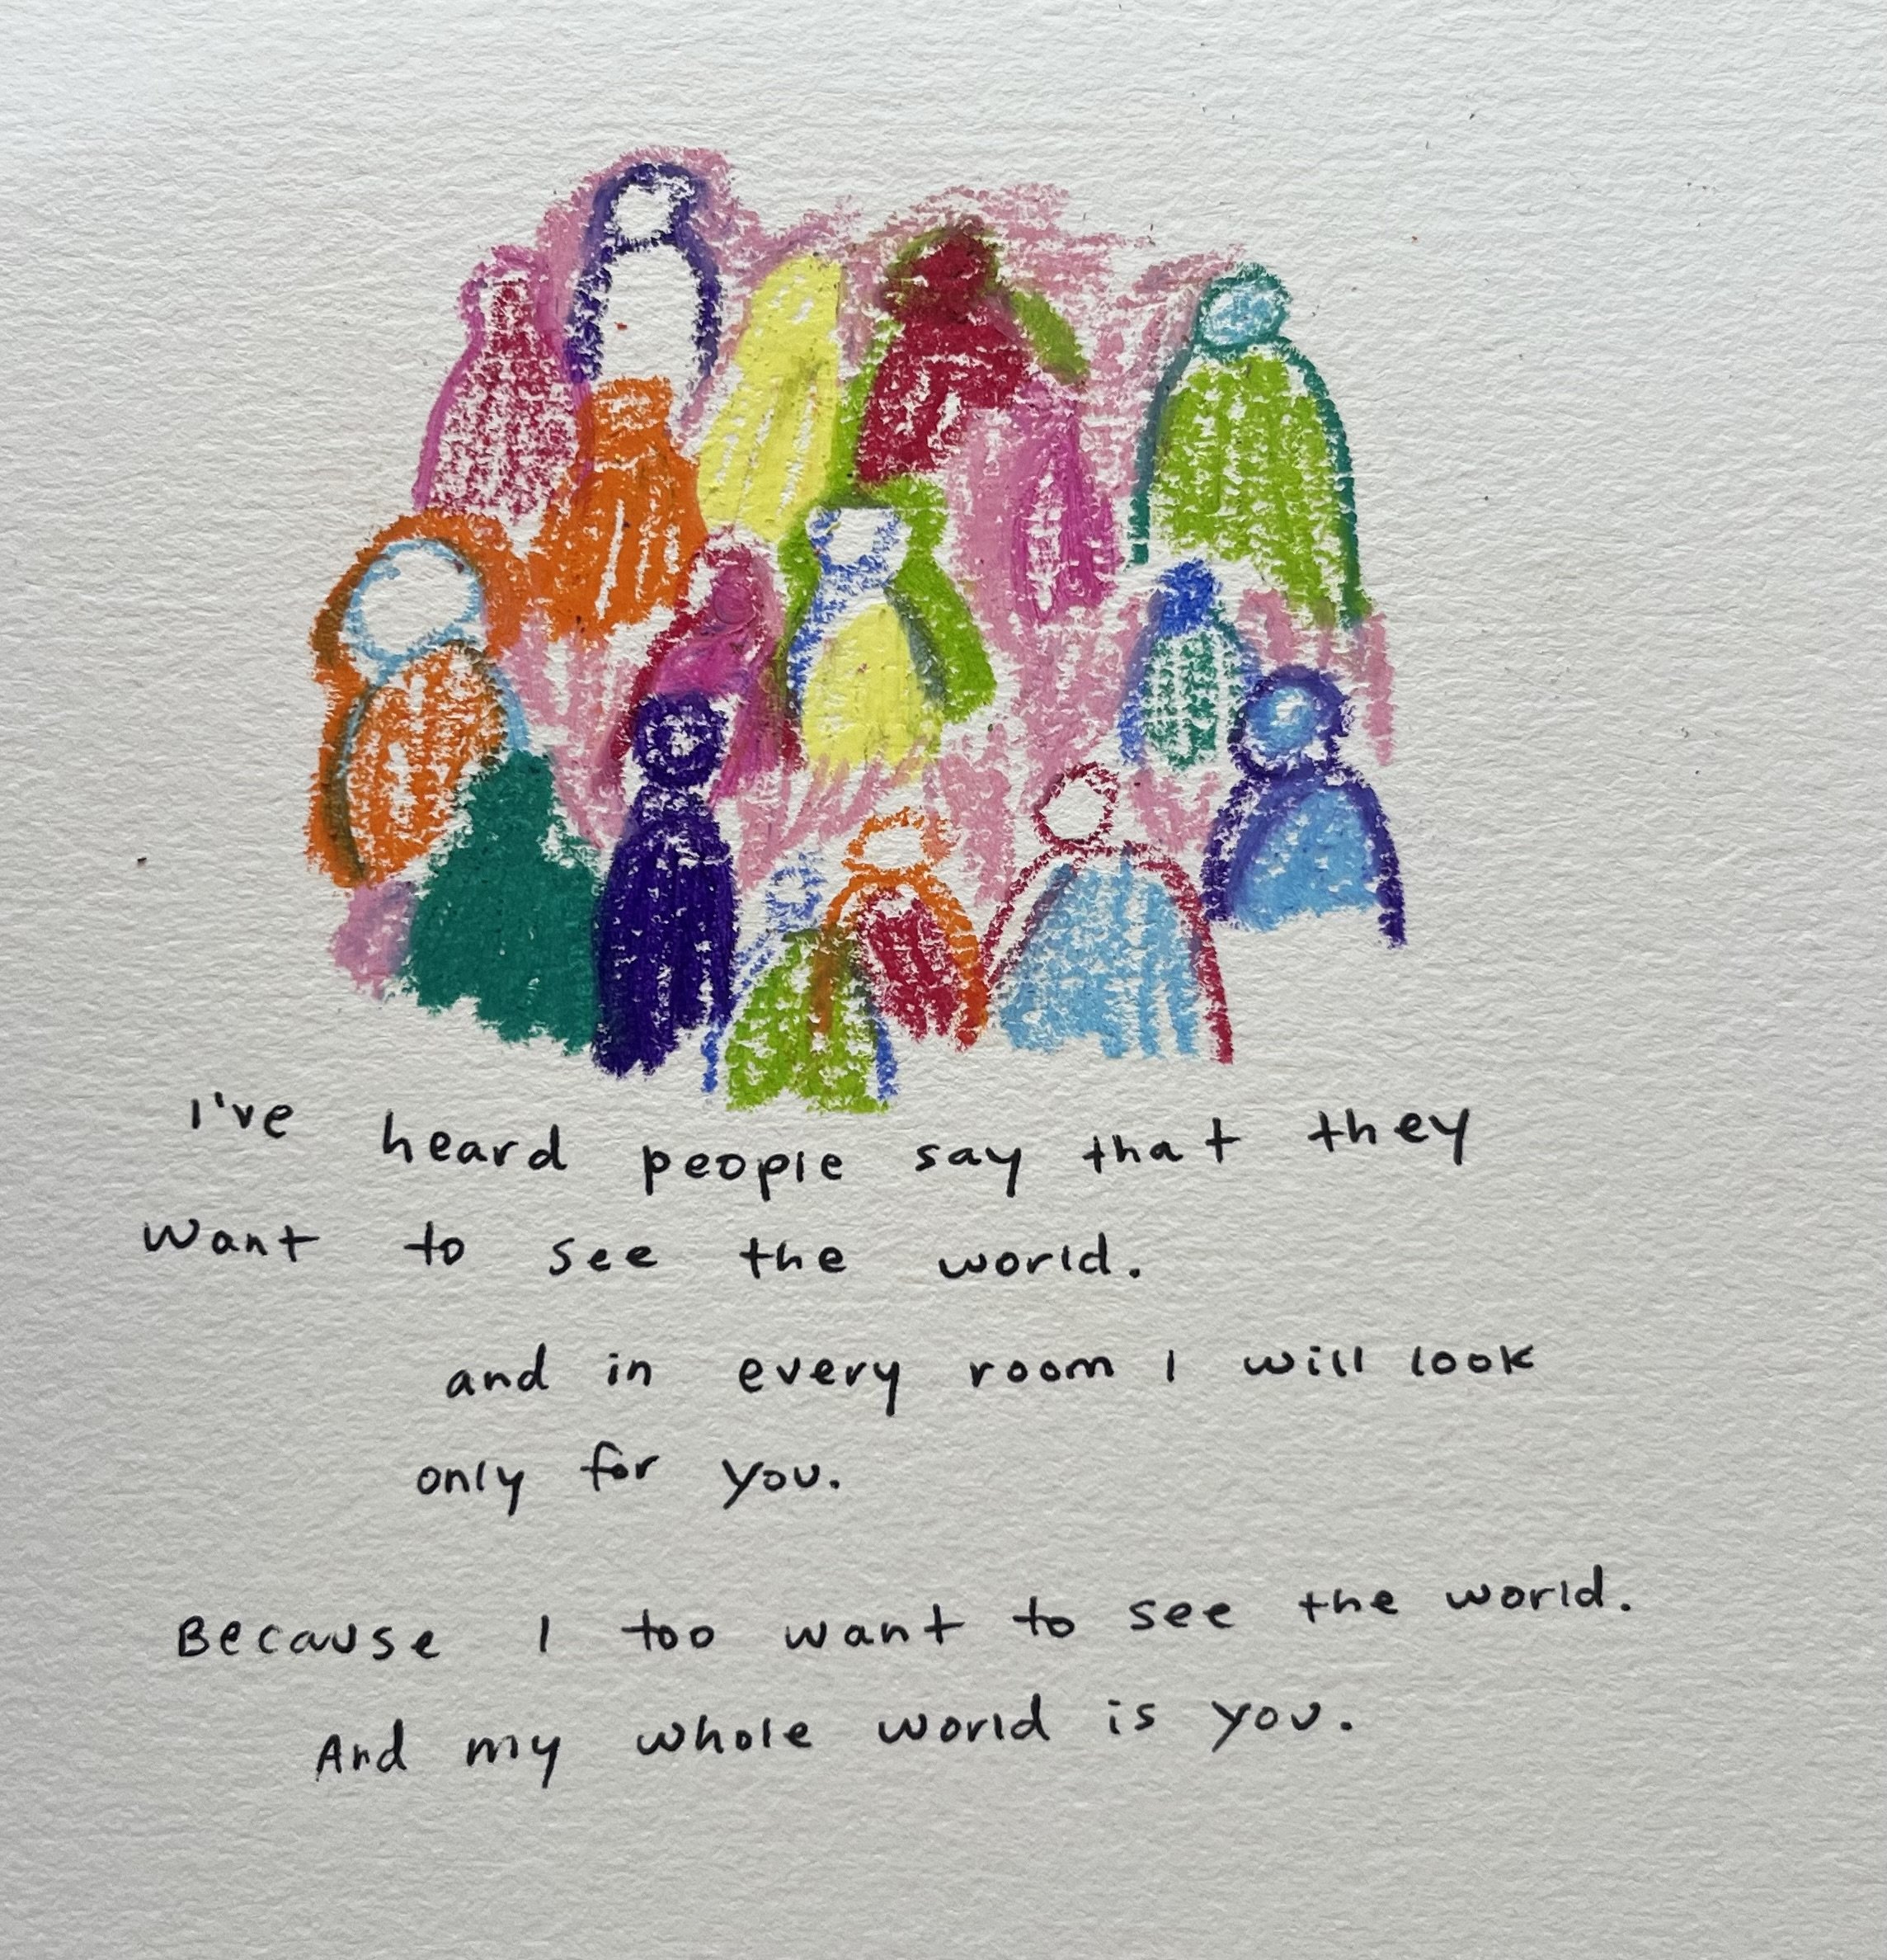 I've heard people say that they
want to see the world.
and in every room I will look
only for you.
Because I too want to see the world.
And my whole world is you.